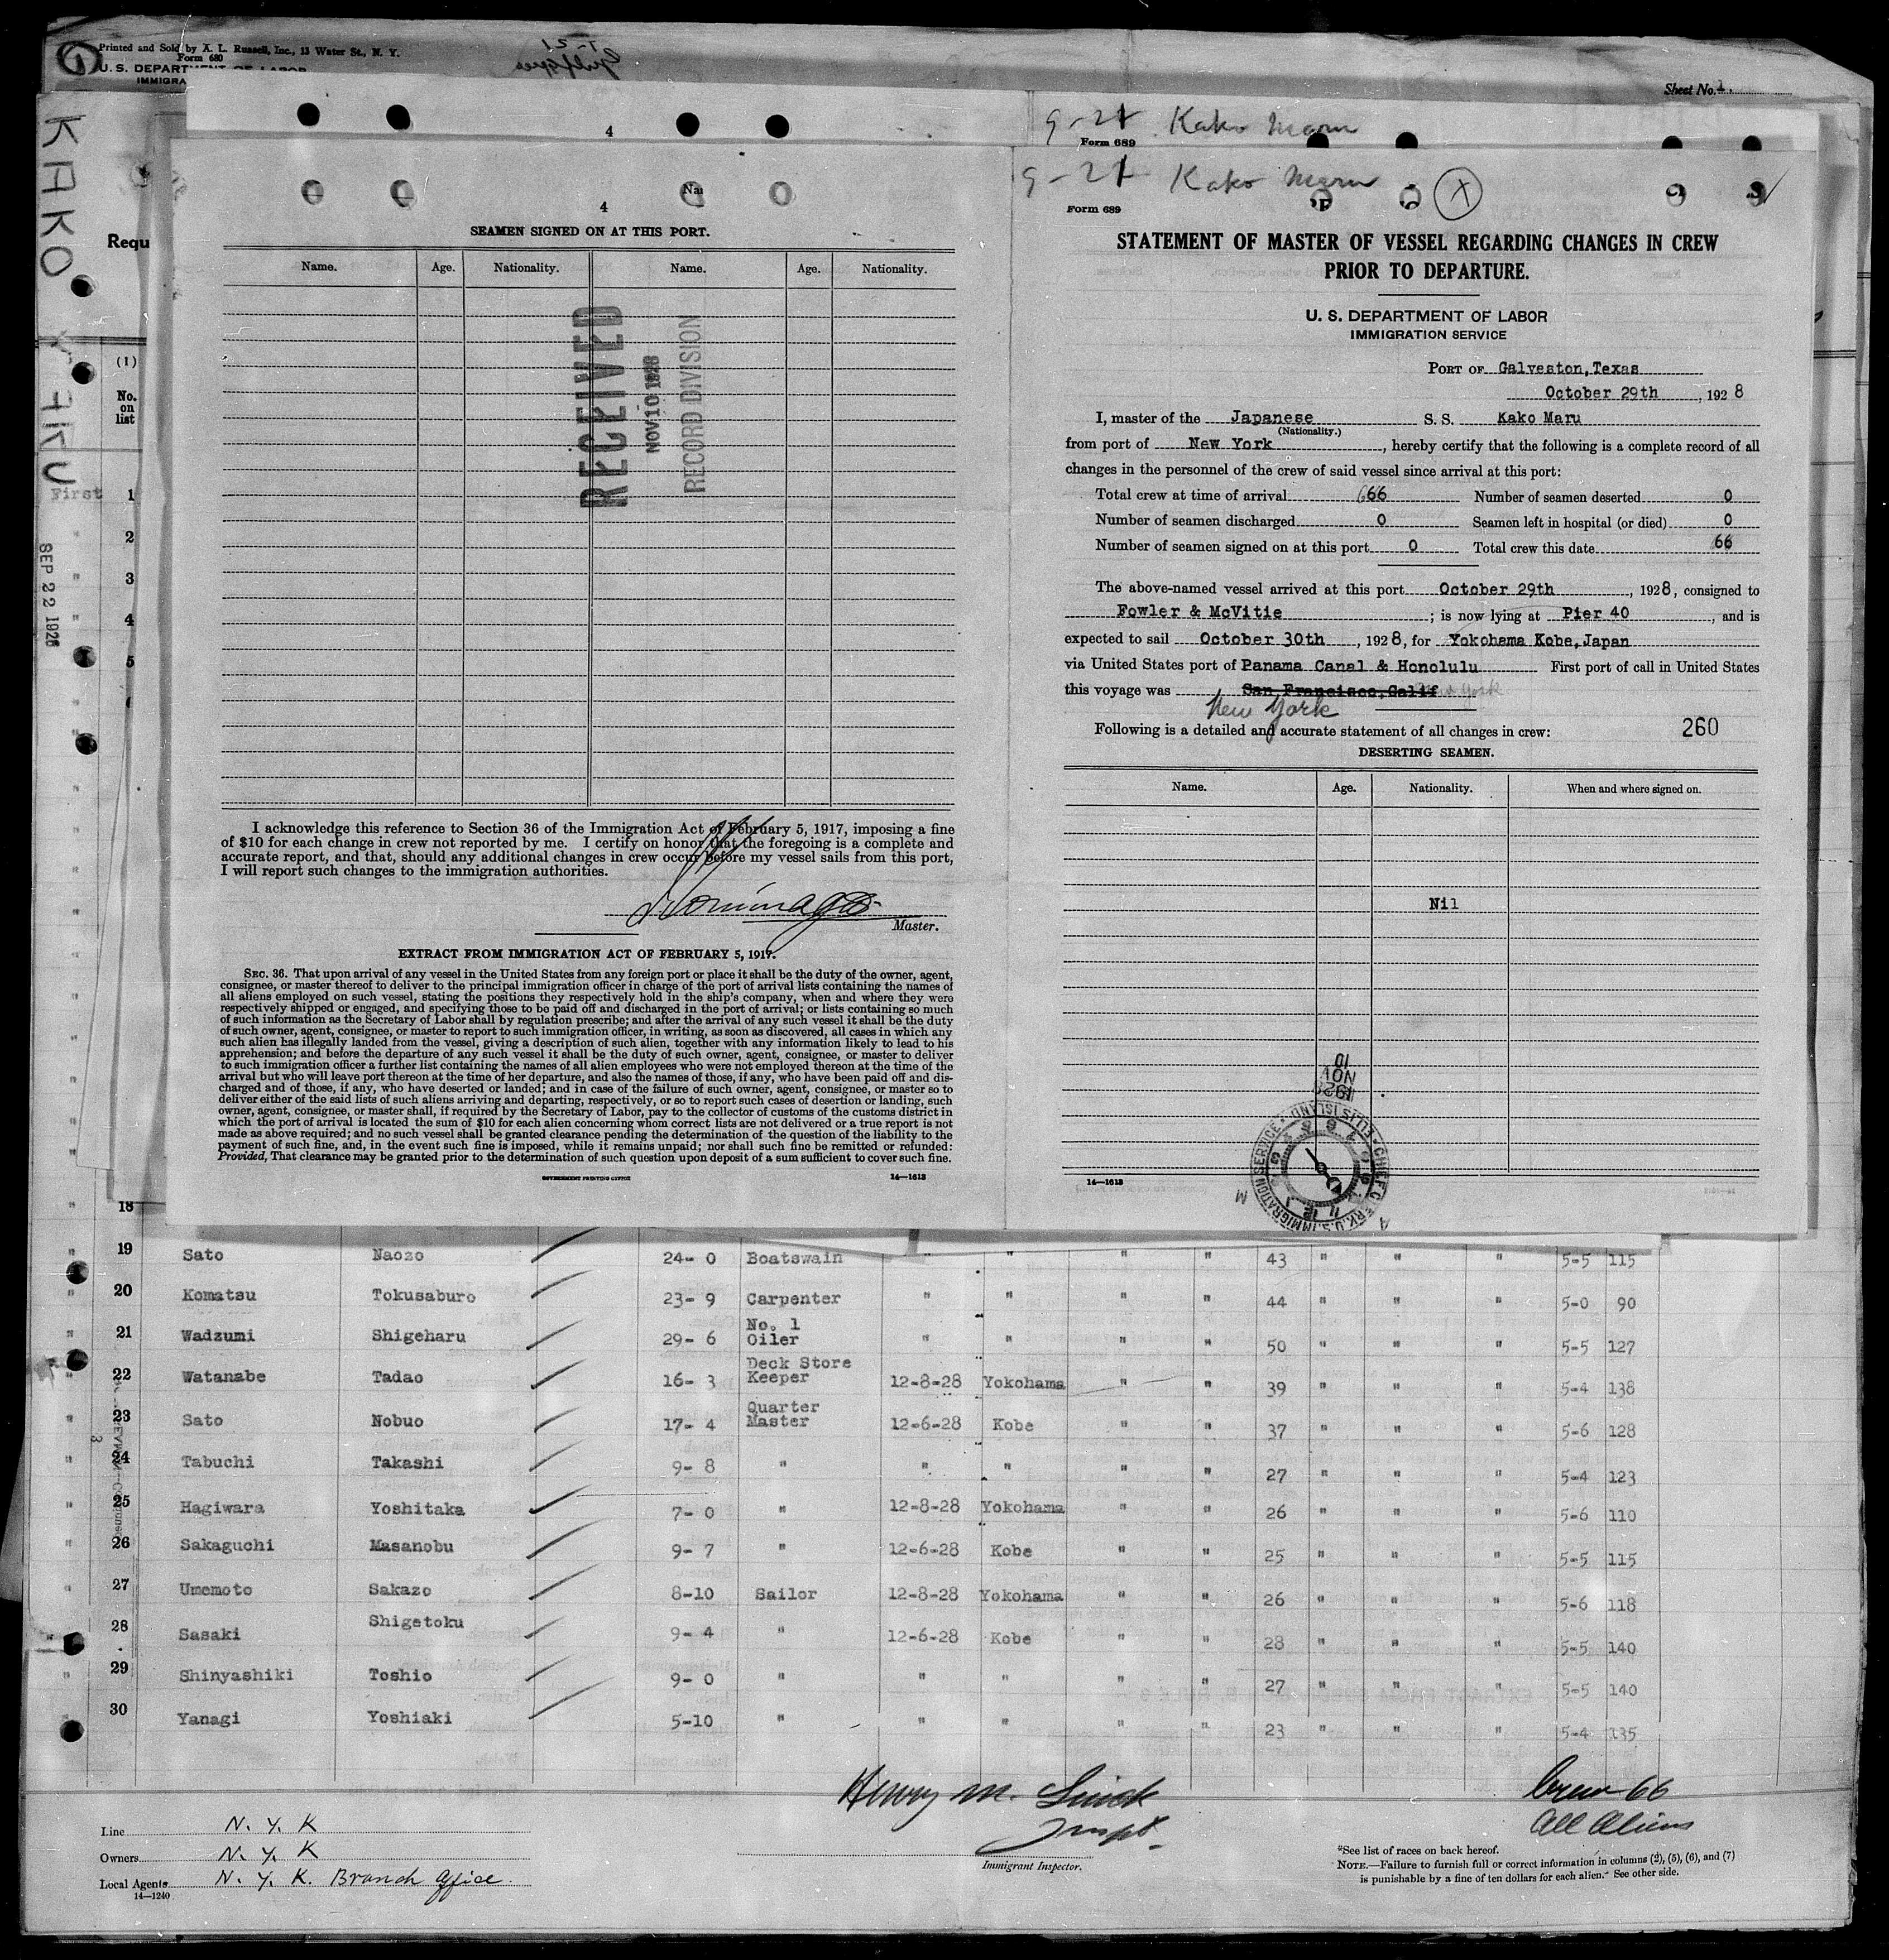 Printed and Sold by A. L. Russell, Inc., 13 Water St., N. Y.
Form 680
U. S. DEPARTMENT OF LABOR
IMMIGRA
Sheet No. 1.
KAKO MARU
SEP 22 1928
Requ
(1)
No.
on
list
First 1
" 2
" 3
" 4
" 5
4
9-21 Kako Maru
Form 689
Nai
4
SEAMEN SIGNED ON AT THIS PORT.
Name. Age. Nationality. Name. Age. Nationality.
RECEIVED
NOV 10 1928
RECORD DIVISION
I acknowledge this reference to Section 36 of the Immigration Act of February 5, 1917, imposing a fine
of $10 for each change in crew not reported by me. I certify on honor that the foregoing is a complete and
accurate report, and that, should any additional changes in crew occur before my vessel sails from this port,
I will report such changes to the immigration authorities.
Master.
EXTRACT FROM IMMIGRATION ACT OF FEBRUARY 5, 1917.
SEC. 36. That upon arrival of any vessel in the United States from any foreign port or place it shall be the duty of the owner, agent,
consignee, or master thereof to deliver to the principal immigration officer in charge of the port of arrival lists containing the names of
all aliens employed on such vessel, stating the positions they respectively hold in the ship's company, when and where they were
respectively shipped or engaged, and specifying those to be paid off and discharged in the port of arrival; or lists containing so much
of such information as the Secretary of Labor shall by regulation prescribe; and after the arrival of any such vessel it shall be the duty
of such owner, agent, consignee, or master to report to such immigration officer, in writing, as soon as discovered, all cases in which any
such alien has illegally landed from the vessel, giving a description of such alien, together with any information likely to lead to his
apprehension; and before the departure of any such vessel it shall be the duty of such owner, agent, consignee, or master to deliver
to such immigration officer a further list containing the names of all alien employees who were not employed thereon at the time of the
arrival but who will leave port thereon at the time of her departure, and also the names of those, if any, who have been paid off and dis-
charged and of those, if any, who have deserted or landed; and in case of the failure of such owner, agent, consignee, or master so to
deliver either of the said lists of such aliens arriving and departing, respectively, or so to report such cases of desertion or landing, such
owner, agent, consignee, or master shall, if required by the Secretary of Labor, pay to the collector of customs of the customs district in
which the port of arrival is located the sum of $10 for each alien concerning whom correct lists are not delivered or a true report is not
made as above required; and no such vessel shall be granted clearance pending the determination of the question of the liability to the
payment of such fine, and, in the event such fine is imposed, while it remains unpaid; nor shall such fine be remitted or refunded:
Provided, That clearance may be granted prior to the determination of such question upon deposit of a sum sufficient to cover such fine.
GOVERNMENT PRINTING OFFICE 14—1613
9-21 Kako Maru X
Form 689
STATEMENT OF MASTER OF VESSEL REGARDING CHANGES IN CREW
PRIOR TO DEPARTURE.
U. S. DEPARTMENT OF LABOR
IMMIGRATION SERVICE
PORT OF Galveston, Texas
October 29th, 1928
I, master of the Japanese S. S. Kako Maru
(Nationality.)
from port of New York, hereby certify that the following is a complete record of all
changes in the personnel of the crew of said vessel since arrival at this port:
Total crew at time of arrival 66 Number of seamen deserted 0
Number of seamen discharged 0 Seamen left in hospital (or died) 0
Number of seamen signed on at this port 0 Total crew this date 66
The above-named vessel arrived at this port October 29th, 1928, consigned to
Fowler & McVitie; is now lying at Pier 40, and is
expected to sail October 30th, 1928, for Yokohama Kobe, Japan
via United States port of Panama Canal & Honolulu First port of call in United States
this voyage was San Francisco, Calif New York
New York
Following is a detailed and accurate statement of all changes in crew: 260
DESERTING SEAMEN.
Name. Age. Nationality. When and where signed on.
Nil
1928
NOV
10
CHIEF CLERK, U.S. IMMIGRATION SERVICE • ELLIS ISLAND
14—1613
18
" 19 Sato Naozo 24- 0 Boatswain " " " " 43 " " " 5-5 115
" 20 Komatsu Tokusaburo 23- 9 Carpenter " " " " 44 " " " 5-0 90
" 21 Wadzumi Shigeharu 29- 6 No. 1 Oiler " " " " 50 " " " 5-5 127
" 22 Watanabe Tadao 16- 3 Deck Store Keeper 12-8-28 Yokohama " " 39 " " " 5-4 138
" 23 Sato Nobuo 17- 4 Quarter Master 12-6-28 Kobe " " 37 " " " 5-6 128
" 24 Tabuchi Takashi 9- 8 " " " " " 27 " " " 5-4 123
" 25 Hagiwara Yoshitaka 7- 0 " 12-8-28 Yokohama " " 26 " " " 5-6 110
" 26 Sakaguchi Masanobu 9- 7 " 12-6-28 Kobe " " 25 " " " 5-5 115
" 27 Umemoto Sakazo 8-10 Sailor 12-8-28 Yokohama " " 26 " " " 5-6 118
" 28 Sasaki Shigetoku 9- 4 " 12-6-28 Kobe " " 28 " " " 5-5 140
" 29 Shinyashiki Toshio 9- 0 " " " " " 27 " " " 5-5 140
" 30 Yanagi Yoshiaki 5-10 " " " " " 23 " " " 5-4 135
Line N. Y. K
Owners N. Y. K
Local Agents N. Y. K. Branch Office.
14—1240
Henry M.
Inspt.
Immigrant Inspector.
Crew 66
All Aliens
*See list of races on back hereof.
NOTE.—Failure to furnish full or correct information in columns (2), (5), (6), and (7)
is punishable by a fine of ten dollars for each alien. See other side.